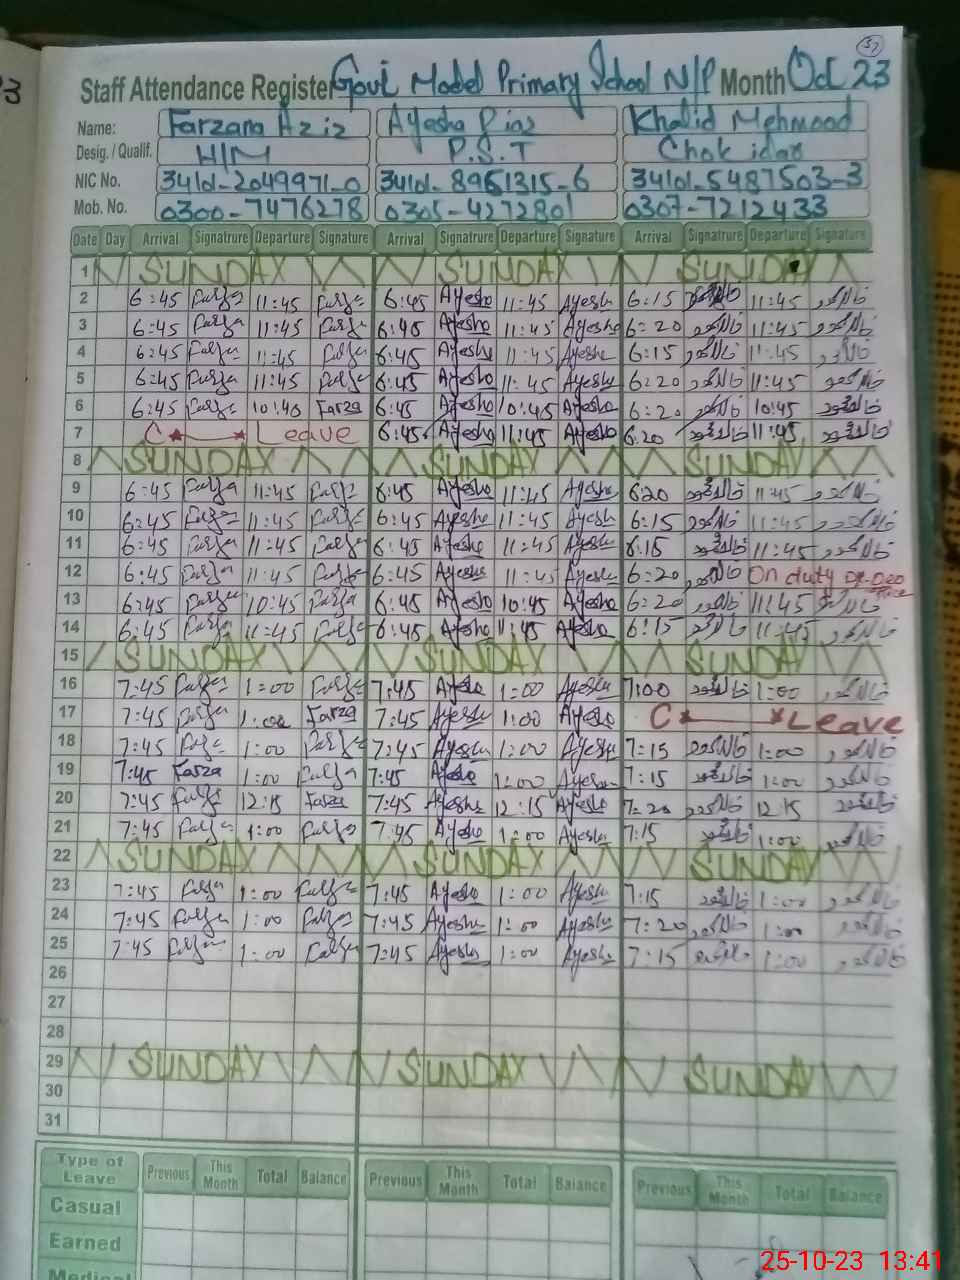 57
Staff Attendance Register Govt Model Primary School N/P Month Oct 23
Name: Farzana Aziz Ayesha Riaz Khalid Mehmood
Desig. / Qualif. H/M P.S.T Chokidar
NIC No. 34101-2049971-0 34101-8961315-6 34101-5487503-3
Mob. No. 0300-7476278 0305-4272801 0307-7212433
Date Day Arrival Signatrure Departure Signature Arrival Signatrure Departure Signature Arrival Signatrure Departure Signature
1 SUNDAY SUNDAY SUNDAY
2 6:45 Farza 11:45 Farza 6:45 Ayesha 11:45 Ayesha 6:15 خالد محمود 11:45 خالد محمود
3 6:45 Farza 11:45 Farza 6:45 Ayesha 11:45 Ayesha 6:20 خالد محمود 11:45 خالد محمود
4 6:45 Farza 11:45 Farza 6:45 Ayesha 11:45 Ayesha 6:15 خالد محمود 11:45 خالد محمود
5 6:45 Farza 11:45 Farza 6:45 Ayesha 11:45 Ayesha 6:20 خالد محمود 11:45 خالد محمود
6 6:45 Farza 10:40 Farza 6:45 Ayesha 10:45 Ayesha 6:20 خالد محمود 10:45 خالد محمود
7 C Leave 6:45 Ayesha 11:45 Ayesha 6:20 خالد محمود 11:45 خالد محمود
8 SUNDAY SUNDAY SUNDAY
9 6:45 Farza 11:45 Farza 6:45 Ayesha 11:45 Ayesha 6:20 خالد محمود 11:45 خالد محمود
10 6:45 Farza 11:45 Farza 6:45 Ayesha 11:45 Ayesha 6:15 خالد محمود 11:45 خالد محمود
11 6:45 Farza 11:45 Farza 6:45 Ayesha 11:45 Ayesha 6:15 خالد محمود 11:45 خالد محمود
12 6:45 Farza 11:45 Farza 6:45 Ayesha 11:45 Ayesha 6:20 خالد محمود On duty office
13 6:45 Farza 10:45 Farza 6:45 Ayesha 10:45 Ayesha 6:20 خالد محمود 11:45 خالد محمود
14 6:45 Farza 11:45 Farza 6:45 Ayesha 11:45 Ayesha 6:15 خالد محمود 11:45 خالد محمود
15 SUNDAY SUNDAY SUNDAY
16 7:45 Farza 1:00 Farza 7:45 Ayesha 1:00 Ayesha 7:00 خالد محمود 1:00 خالد محمود
17 7:45 Farza 1:00 Farza 7:45 Ayesha 1:00 Ayesha C Leave
18 7:45 Farza 1:00 Farza 7:45 Ayesha 1:00 Ayesha 7:15 خالد محمود 1:00 خالد محمود
19 7:45 Farza 1:00 Farza 7:45 Ayesha 1:00 Ayesha 7:15 خالد محمود 1:00 خالد محمود
20 7:45 Farza 12:15 Farza 7:45 Ayesha 12:15 Ayesha 7:20 خالد محمود 12:15 خالد محمود
21 7:45 Farza 1:00 Farza 7:45 Ayesha 1:00 Ayesha 7:15 خالد محمود 1:00 خالد محمود
22 SUNDAY SUNDAY SUNDAY
23 7:45 Farza 1:00 Farza 7:45 Ayesha 1:00 Ayesha 7:15 خالد محمود 1:00 خالد محمود
24 7:45 Farza 1:00 Farza 7:45 Ayesha 1:00 Ayesha 7:20 خالد محمود 1:00 خالد محمود
25 7:45 Farza 1:00 Farza 7:45 Ayesha 1:00 Ayesha 7:15 خالد محمود 1:00 خالد محمود
26
27
28
29 SUNDAY SUNDAY SUNDAY
30
31
Type of Leave Previous This Month Total Balance Previous This Month Total Balance Previous This Month Total Balance
Casual
Earned
Medical
25-10-23 13:41